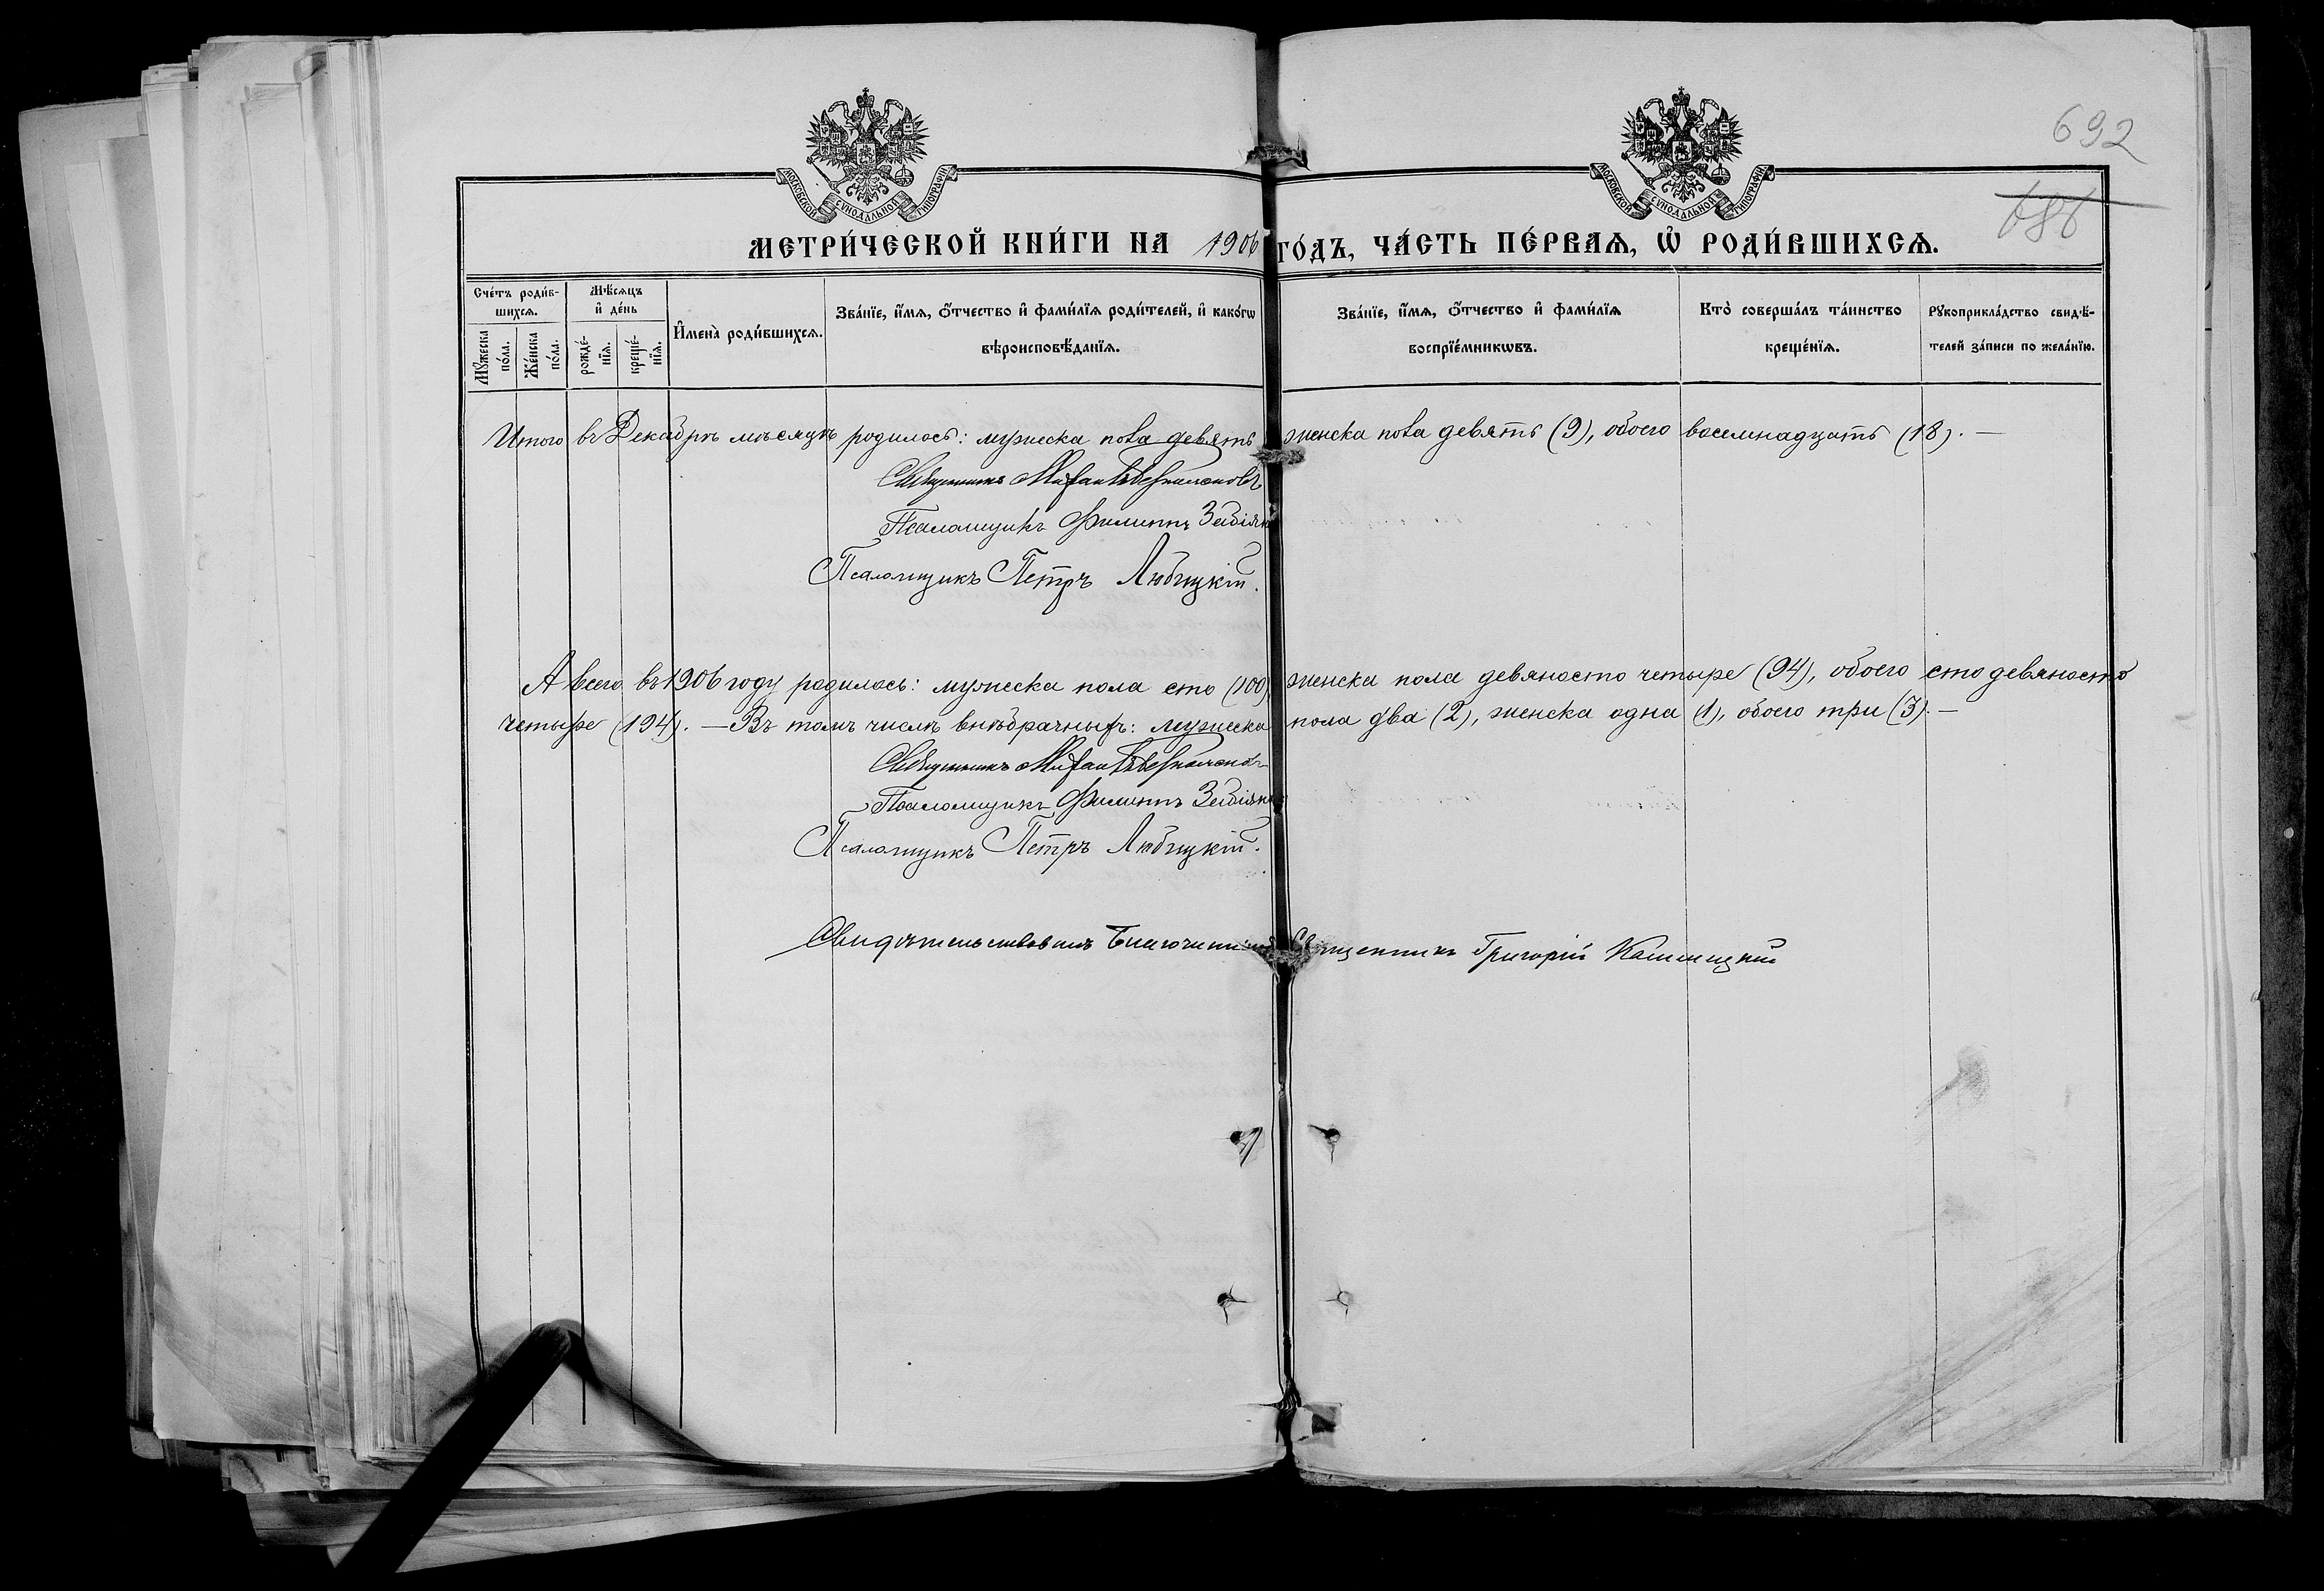 692
МОСКОВСКОЙ СѴНОДАЛЬНОЙ ТИПОГРАФІИ
МОСКОВСКОЙ СѴНОДАЛЬНОЙ ТИПОГРАФІИ
МЕТРИ́ЧЕСКОЙ КНИ́ГИ НА 1906 ГО́ДЪ, ЧА́СТЬ ПЕ́РВАѦ, Ѡ҆ РОДИ́ВШИХСѦ.
Сче́тъ роди́в-
шихсѧ.
Мꙋ́жеска по́ла.
Же́нска по́ла.
Мѣ́сѧцъ и҆ де́нь
рожде́-нїѧ.
креще́-нїѧ.
И҆мена̀ роди́вшихсѧ.
Зва́нїе, и҆́мѧ, ѻ҆́тчество и҆ фами́лїѧ роди́телей, и҆ како́гѡ
вѣроисповѣ́данїѧ.
Зва́нїе, и҆́мѧ, ѻ҆́тчество и҆ фами́лїѧ
воспрїе́мникѡвъ.
Кто̀ соверша́лъ та́инство
креще́нїѧ.
Рꙋкоприкла́дство свидѣ́-
телей за́писи по жела́нїю.
Итого въ Декабрѣ мѣсяцѣ родилось: мужеска пола девять женска пола девять (9), обоего восемнадцать (18). —
Священникъ Михаилъ
Псаломщикъ Филиппъ
Псаломщикъ Петръ Любицкій.
А всего въ 1906 году родилось: мужеска пола сто (100), женска пола девяносто четыре (94), обоего сто девяносто
четыре (194). — Въ томъ числѣ внѣбрачныхъ: мужеска пола два (2), женска одна (1), обоего три (3). —
Священникъ Михаилъ
Псаломщикъ Филиппъ
Псаломщикъ Петръ Любицкій.
Свидѣтельствовалъ Благочинный Священникъ Григорій